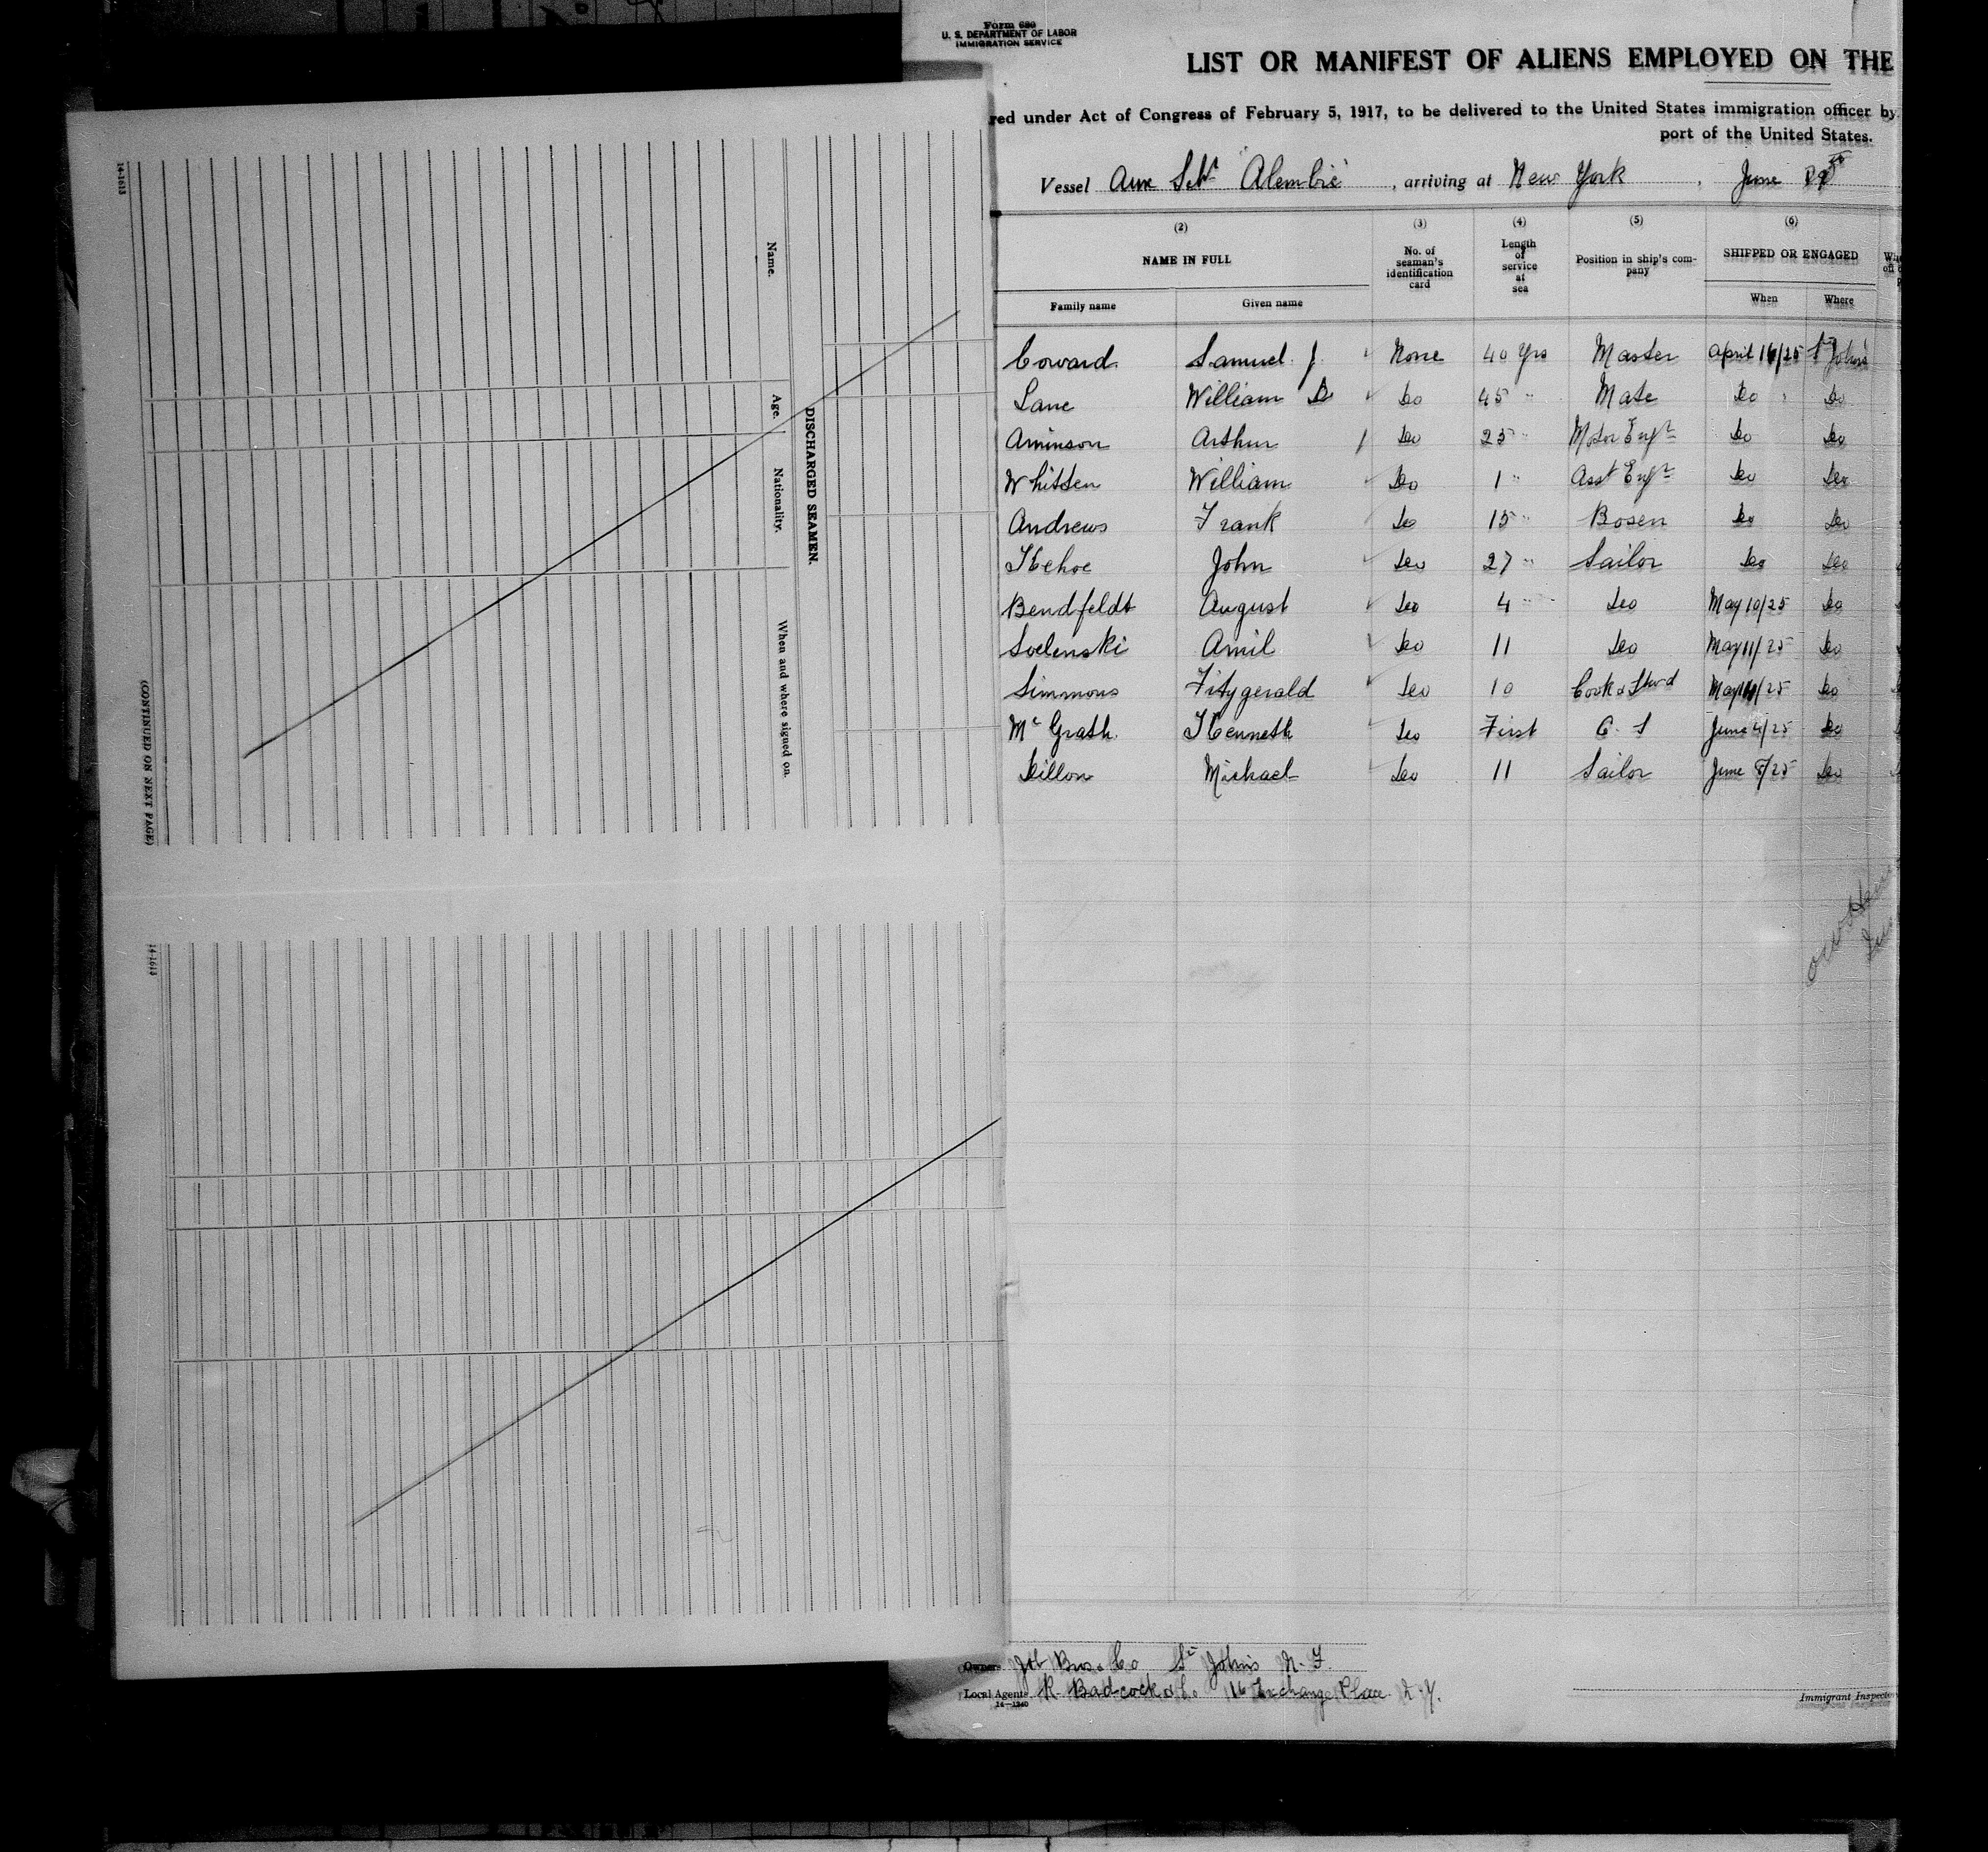 Form 680
U. S. DEPARTMENT OF LABOR
IMMIGRATION SERVICE
LIST OR MANIFEST OF ALIENS EMPLOYED ON THE
red under Act of Congress of February 5, 1917, to be delivered to the United States immigration officer by
port of the United States.
Vessel Aux Schr "Alembic" , arriving at New York , June
(2) (3) (4) (5) (6)
NAME IN FULL No. of seaman's identification card Length of service at sea Position in ship's company SHIPPED OR ENGAGED
Family name Given name When Where
Coward Samuel J. None 40 Yrs Master April 14/25 St John's
Lane William B Do 45 " Mate Do Do
Aminson Arthur Do 25 " Motor Engr Do Do
Whitten William Do 1 " Asst Engr Do Do
Andrews Frank Do 15 " Bosen Do Do
Kehoe John Do 27 " Sailor Do Do
Bendfeldt August Do 4 " Do May 10/25 Do
Soelenski Amil Do 11 Do May 11/25 Do
Simmons Fitzgerald Do 10 Cook & Stwd May /25 Do
Mc Grath Kenneth Do First June 4/25 Do
Dillon Michael Do 11 Sailor June 8/25 Do
Owners Job Bros & Co St John's N. F.
Local Agents R. Badcock & Co 116 Exchange Place N.Y.
14—1240
Immigrant Inspector
14-1613
DISCHARGED SEAMEN.
Name. Age. Nationality. When and where signed on.
(CONTINUED ON NEXT PAGE)
14-1613